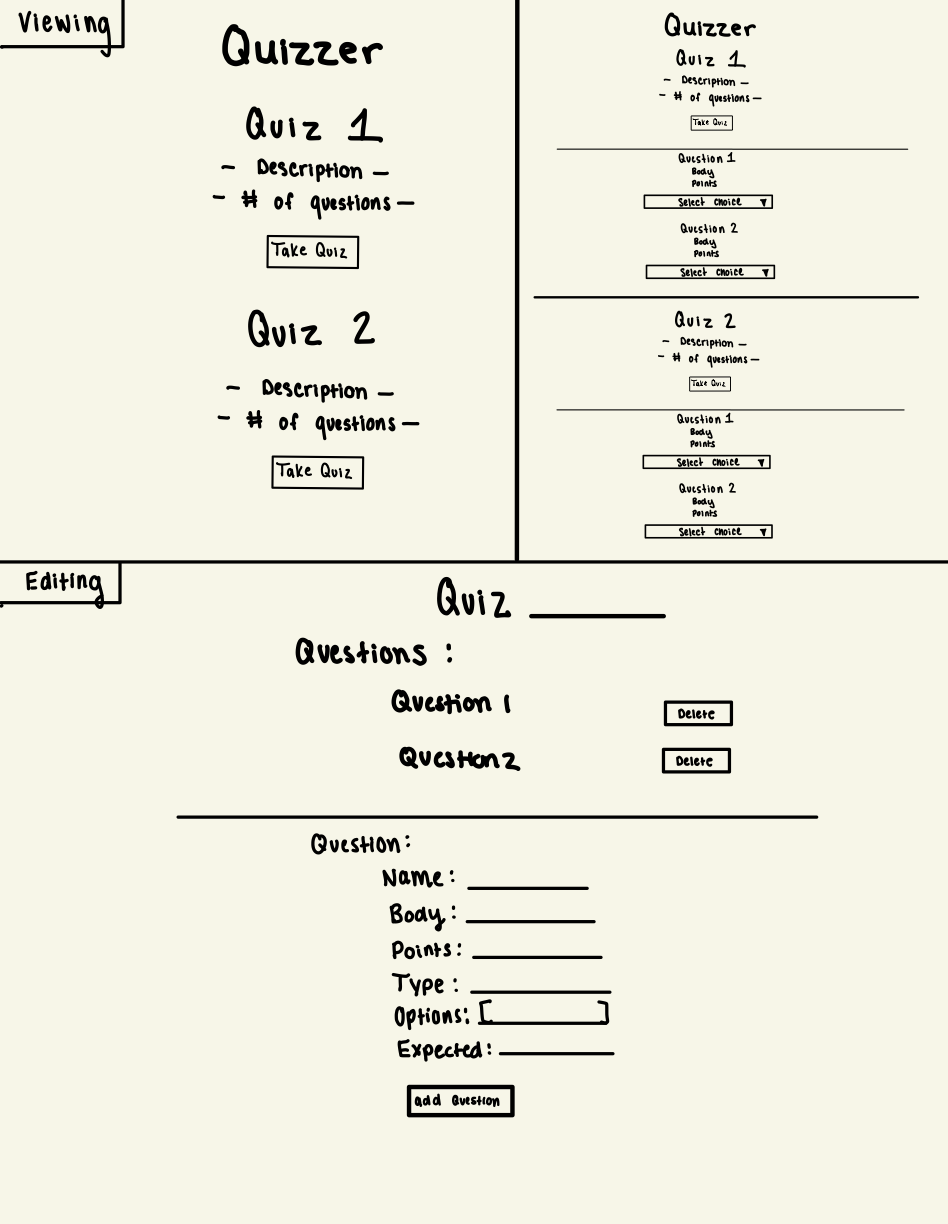 Viewing
Quizzer
Quiz 1
- Description -
- # of questions -
Take Quiz
Quiz 2
- Description -
- # of questions -
Take Quiz
Quizzer
Quiz 1
- Description -
- # of questions -
Take Quiz
Question 1
Body
Points
Select choice ▼
Question 2
Body
Points
Select choice ▼
Quiz 2
- Description -
- # of questions -
Take Quiz
Question 1
Body
Points
Select choice ▼
Question 2
Body
Points
Select choice ▼
Editing
Quiz ______
Questions :
Question 1 Delete
Question 2 Delete
Question:
Name: ______
Body: ______
Points: ______
Type: ______
Options: [______]
Expected: ______
add Question